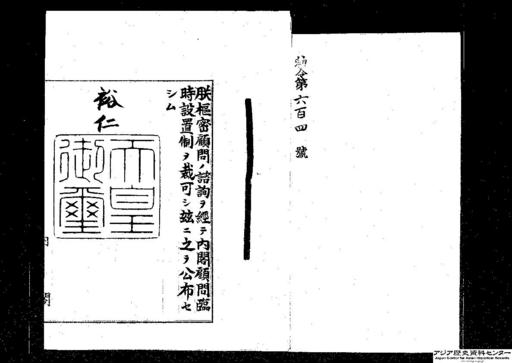 勅令第六百四號
朕樞密顧問ノ諮詢ヲ經テ內閣顧問臨
時設置制ヲ裁可シ玆ニ之ヲ公布セ
シム
裕仁
天皇
御璽
閣
アジア歴史資料センター
Japan Center for Asian Historical Records